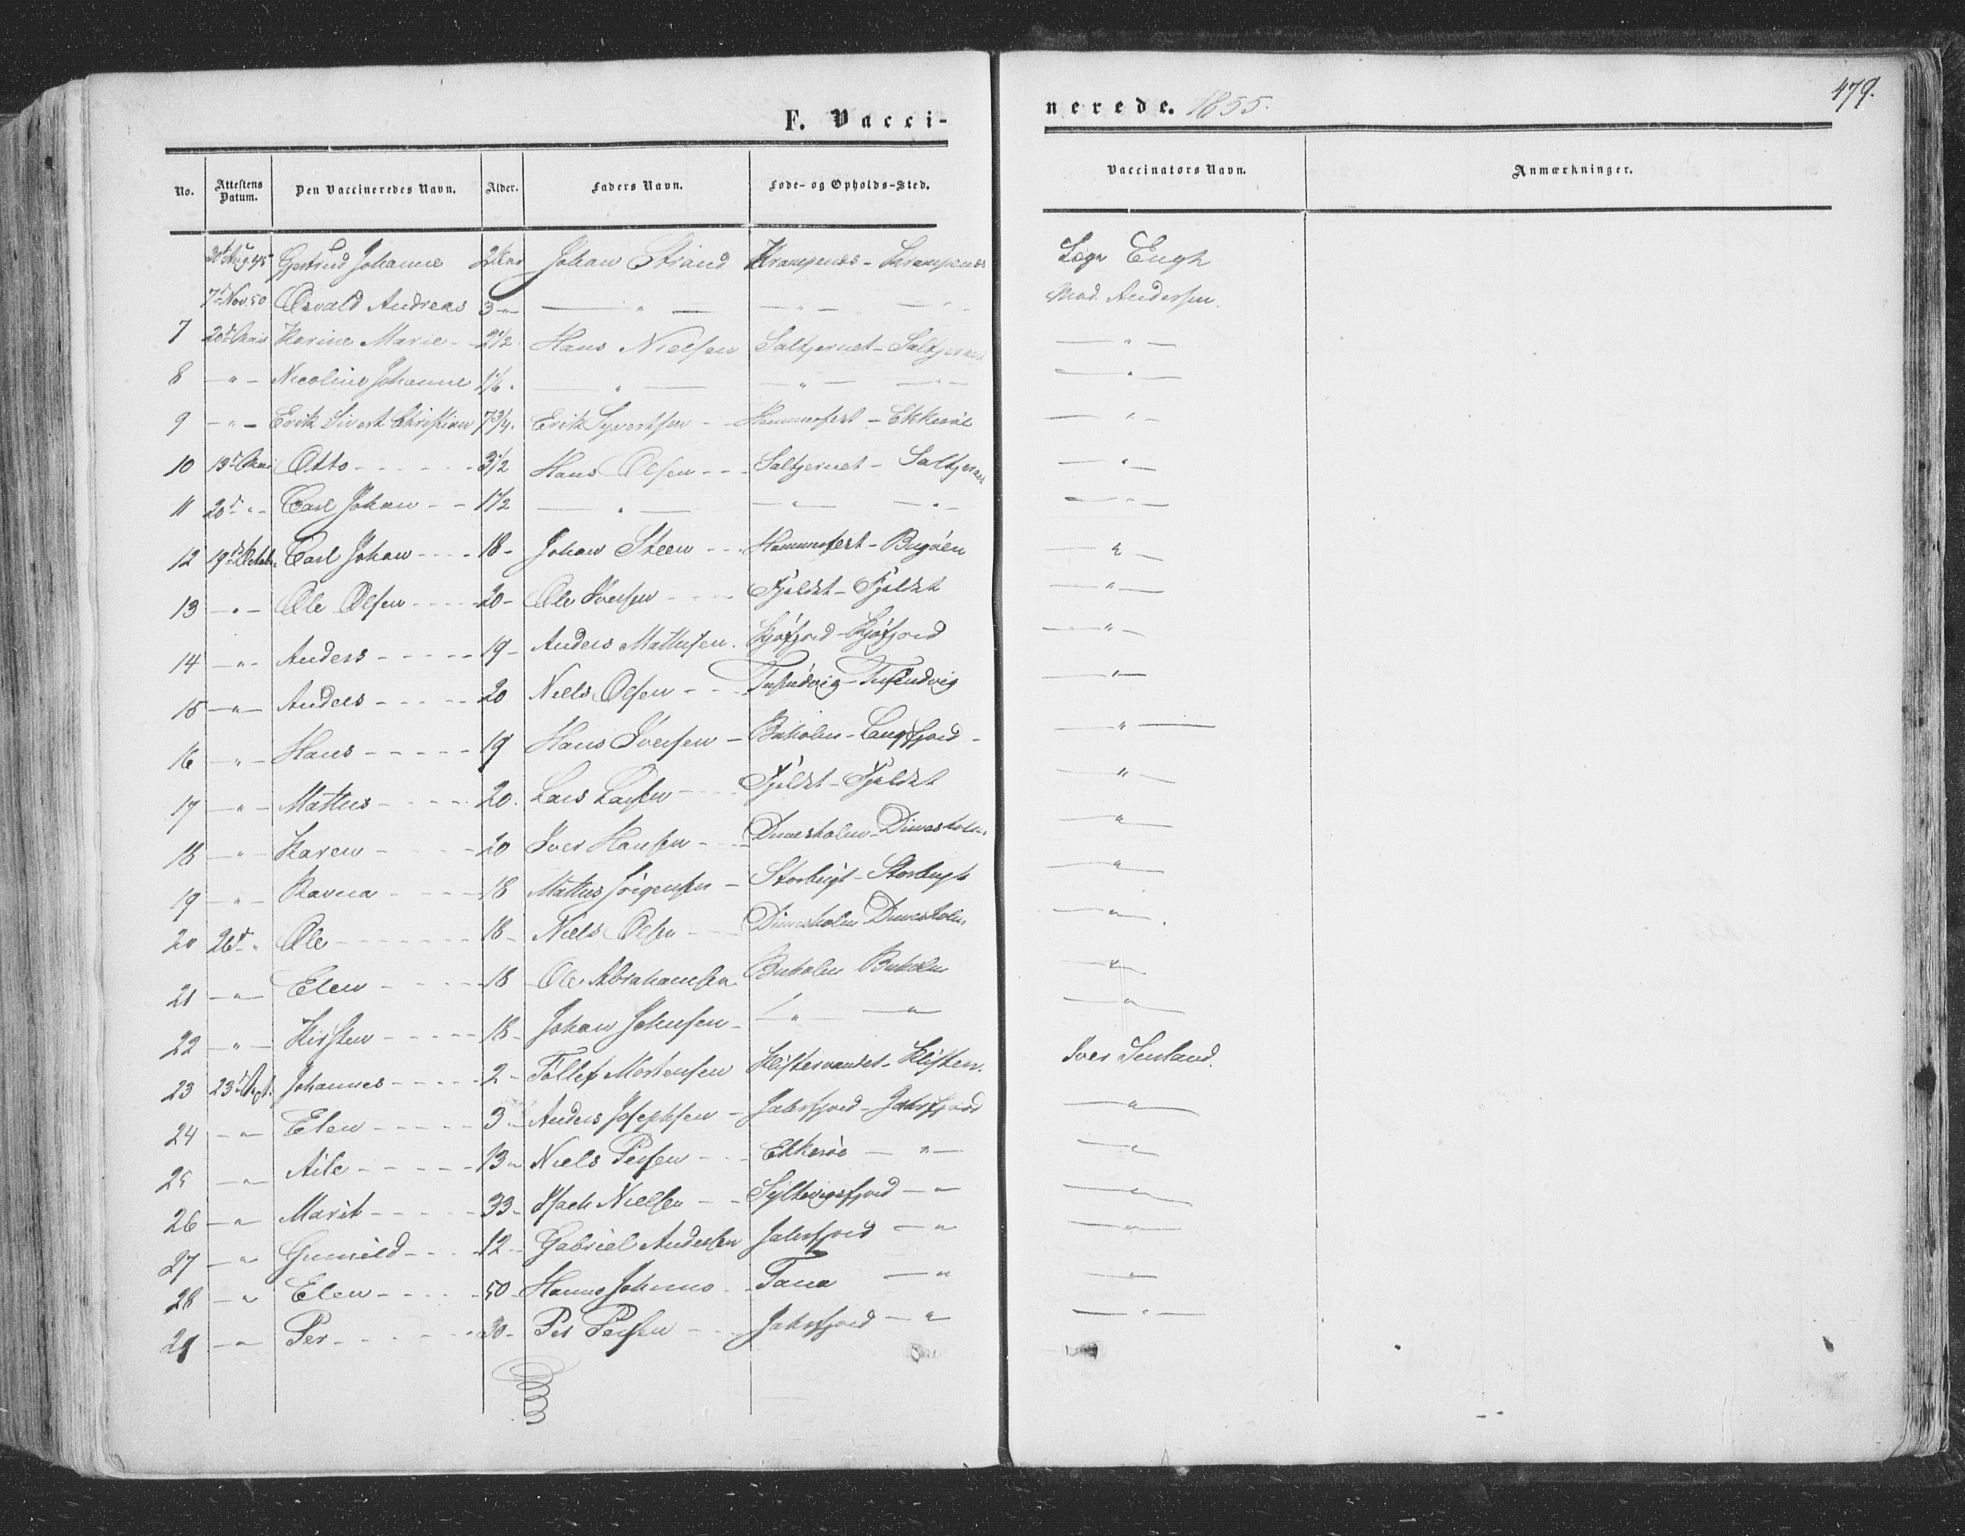 479.
F. Vacci-
nerede. 1855.
No. Attestens Datum. Den Vaccineredes Navn. Alder. Faders Navn. Føde- og Opholds-Sted. Vaccinators Navn. Anmærkninger.
30t Aug. 45 Gjertrud Johanne Johan Strand Krampenes - Krampenes Engh
7d Nov. 50 Osvald Andreas 3 " — " — — " — — " — Mad. Andersen.
7 Karine Marie - 2 1/2 Hans Nielsen Saltjernet - Saltjernet — " —
8 — " — Nicoline Johanne — " — — " — — " —
9 — " — Erik Sivert Christian 7 3/4. Erik Syvertsen - - Hammerfest - Ekkerøe — " —
10 Otto - - - - - - 3 1/2 Hans Olsen - - - Saltjernet - Saltjernet — " —
11 20d " - Carl Johan - - 1 1/2 — " — — " — — " — — " —
12 19d Octobr. Carl Johan - - - - 18 - Johan Steen - - - Hammerfest - Bugøen — " —
13 — " — Ole Olsen - - - - 20 - Ole Iversen - - - - Fjeldet - Fjeldet — " —
14 — " - Anders - - - - - 19 - Anders Mathisen. Kjøfjord - Kjøfjord — " —
15 — " — Anders - - - - - 20 Niels Olsen - - - — " —
16 — " - Hans - - - - - - 19 Hans Iversen - Buholm - Langfjord - — " —
17 — " — Mattus - - - - - 20. Lars Larsen - - - Fjeldet - Fjeldet — " —
18 — " - Karen - - - - - 20 Iver Hansen - - - — " —
19 — " - Ravna - - - - - 18 Mattus Jörgensen - Storbugt - Storbugt — " —
20 26d " Ole - - - - - - - 18 - Niels Olsen - - - — " —
21 — " — Elen - - - - - 18 Ole Abrahamsen Buholm Buholm — " —
22 — " — Kirsten - - - - 18 - Johan Johnsen - — " — — " — — " —
23 Johannes - - - - 2 - Tollef Mortensen Klistervandet - Klisterv. Iver
24 — " Elen - - - - - 3 - Anders Josephsen - Jakosfjord - Jakosfjord — " —
25 — " — Aile - - - - - 13 - Niels Persen - - - Ekkerøe — " — — " —
26 — " Marit - - - - - 33 - Isach Nielsen - - Syltevigsfjord — " — " —
27 — " Gunnild - - - 12 - Gabriel Andersen Jakosfjord — " — " —
28 — " Elen - - - - - 50 - Tana — " — " —
29 — " Per - - - - - - 30 - Per Persen - - - Jakosfjord — " — " —